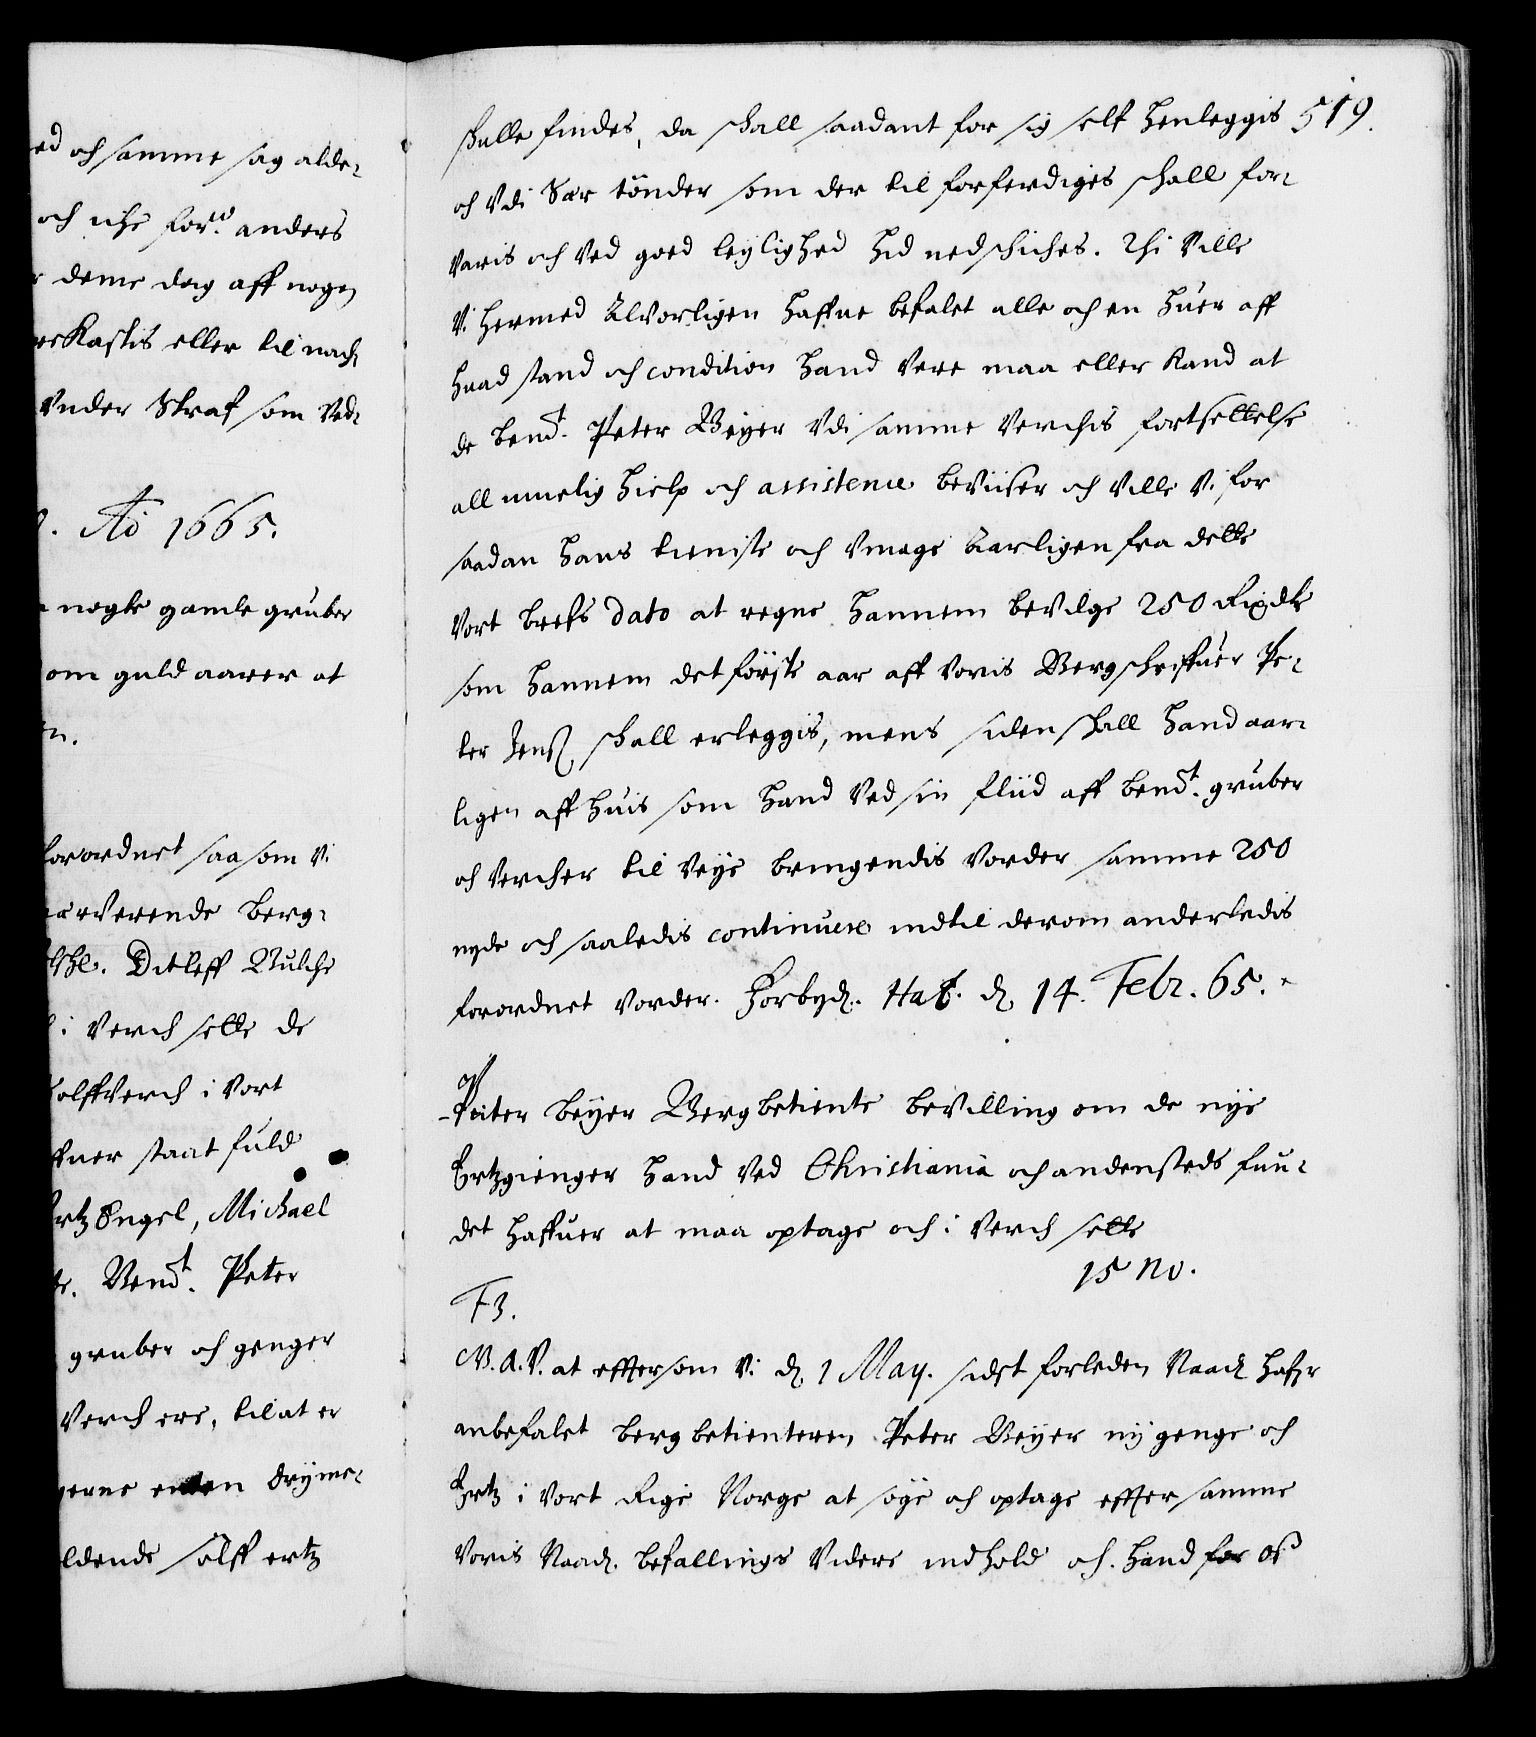 ed och samme sag alde-
och icke for.ne anders
denne dag aff nogen
erkastis eller til nach
Vnder Straf som Ved-
. Ao 1665.
nogle gamle gruber
om guld aarer at
forordnet saa som Vi
nærverende berg-
Ditleff Bulche
i Verch sette de
sølffverch i Vort
ffuer staat fuld
rtz Engel, Michael
Bendt. Peter
gruber och genger
Verch ere, til at er
gerne enten drijme-
ldende sølff ertz
519.
skulle findes, da schall saadant for sig self henleggis
och Vdi Sær tönder som der til forferdiges schall for-
varis och Ved goed leylighed hid nedschiches. Thi Ville
Vi hermed Alvorligen haffue befalet alle och en huer aff
huad stand och condition hand Vere maa eller kand at
de bendt. Peter Beyer Vdi samme Verchis fortsettelse
all muelig hielp och assistence beviiser och Ville Vi for
saadan hans tieniste och Vmage Aarligen fra dette
Vort brefs dato at regne hannem beVilge 250 Rixdlr
som hannem det förste aar aff Voris Bergschriffuer Pe-
ter Jenss. schall erleggis, mens siden skall hand aar-
ligen aff huis som hand Ved sin fliid aff bendt. gruber
och Vercher til Veye bringendis Vorder samme 250
nyde och saaledis continuere indtil derom anderledis
forordnet Vorder. Forbyd. Haf. d. 14. Febr. 65.
Peiter Beyer Bergbetiente beVilling om de nye
Ertzgienger hand Ved Christiania och andensteds fun-
det haffuer at maa optage och i Verch sette
15 No.
F3.
G.A.V. at efftersom Vi d. 1 May. sidst forleden Naad. hafr
anbefalet bergbetienteren Peter Beyer ny genge och
Ertz i Vort Rige Norge at søge och optage effter samme
Voris Naad. befallings Videre indhold och hand for oss